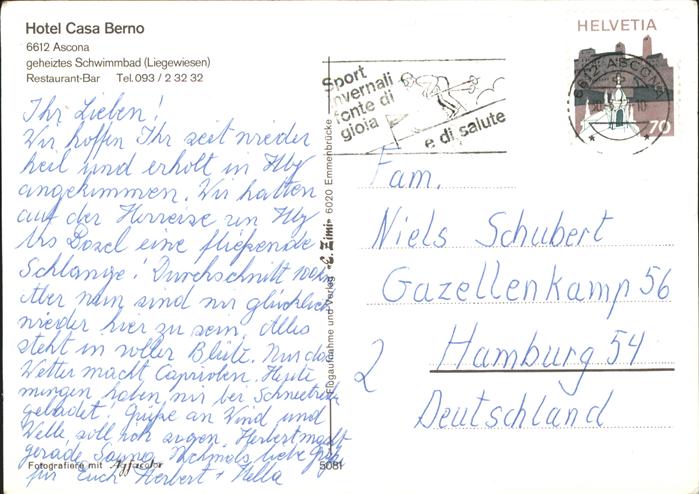 Hotel Casa Berno
6612 Ascona
geheiztes Schwimmbad (Liegewiesen)
Restaurant-Bar Tel. 093 / 2 32 32
Ihr Lieben!
Wir hoffen Ihr seit wieder
heil und erholt in Hbg
angekommen. Wir hatten
auf der Herreise von Hbg
bis Basel eine fließende
Schlange! Durchschnitt 100km
Aber nun sind wir glücklich
wieder hier zu sein. Alles
steht in voller Blüte. Nur das
Wetter macht Capriolen. Heute
morgen haben wir bei Schneetreiben
gebadet! Grüße an Wind und
Welle soll ich sagen. Herbert macht
gerade Sauna. Nochmals liebe Grüße
für Euch Herbert + Hella
Fotografiere mit Agfacolor
5081
Farbaufnahme und Verlag «E. Zimi» 6020 Emmenbrücke
Sport
invernali
fonte di
gioia
e di salute
HELVETIA
6612 ASCONA
70
Fam.
Niels Schubert
Gazellenkamp 56
2 Hamburg 54
Deutschland